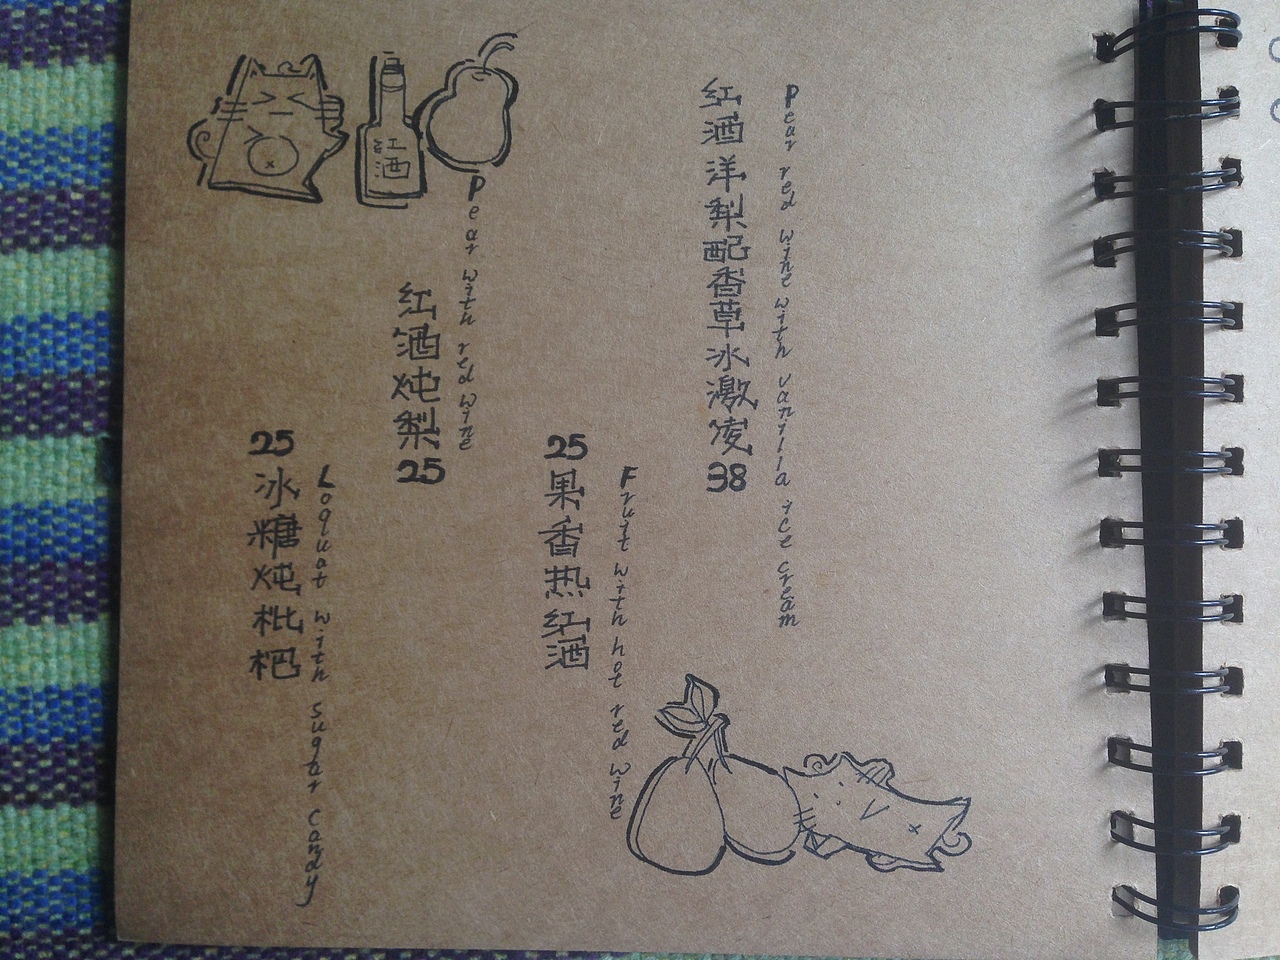 Pear red wine with vanilla ice cream
红酒洋梨配香草冰激凌 38
Fruit with hot red wine
25 果香热红酒
Pear with red wine
红酒炖梨 25
红酒
Loquat with sugar candy
25 冰糖炖枇杷